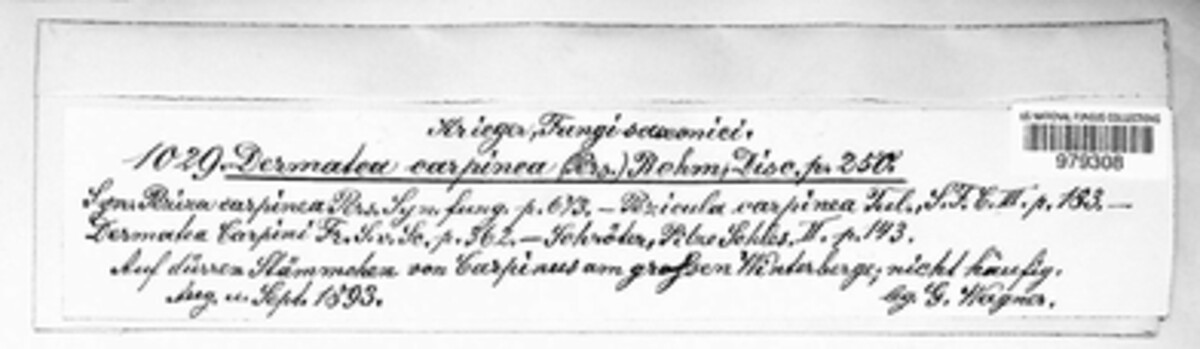 Krieger, Fungi saxonici.
US NATIONAL FUNGUS COLLECTIONS
979308
1029. Dermatea carpinea (Prs.) Rehm, Disc. p. 250.
Syn. Peziza carpinea Prs. Syn. fung. p. 673. — Pezicula carpinea Tul., S. F. C. III. p. 183. —
Dermatea Carpini Fr. S. v. Sc. p. 362. — Schröter, Pilze Schles. II. p. 143.
Auf dürren Stämmchen von Carpinus am großen Winterberge; nicht häufig.
Aug. u. Sept. 1893. leg. G. Wagner.